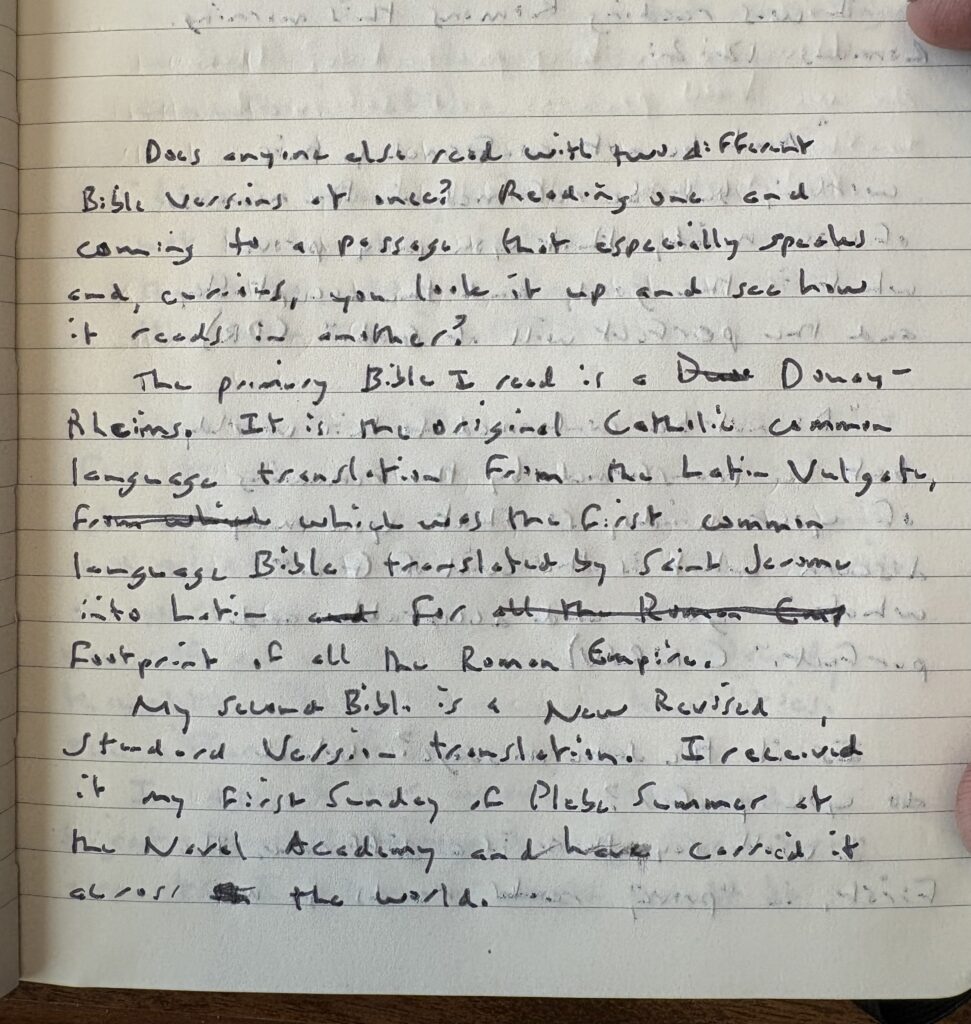 Does anyone else read with two different
Bible versions at once? Reading one and
coming to a passage that especially speaks
and, curious, you look it up and see how
it reads in another?
The primary Bible I read is a Douay-
Rheims. It is the original Catholic common
language translation from the Latin Vulgate,
from which which was the first common
language Bible translated by Saint Jerome
into Latin and for all the Roman Emp
footprint of all the Roman Empire.
My second Bible is a New Revised
Standard Version translation. I received
it my first Sunday of Plebe Summer at
the Naval Academy and have carried it
across the world.